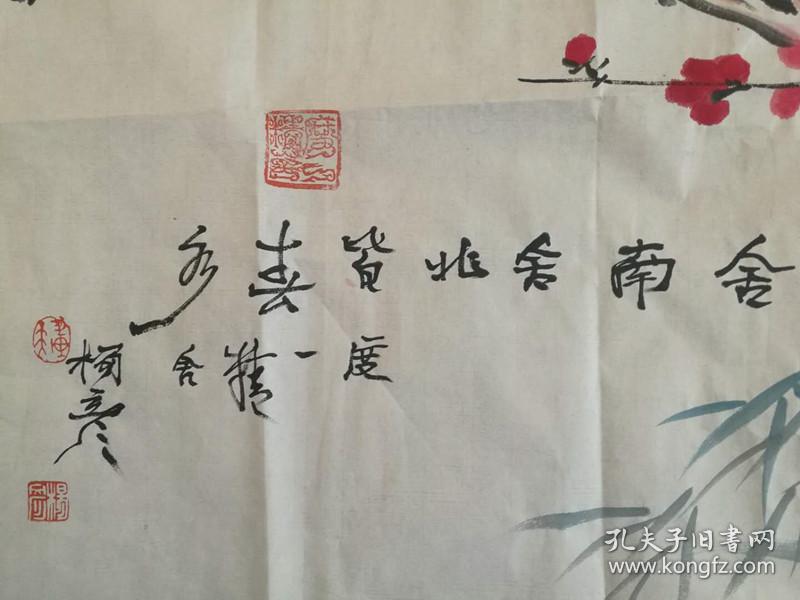 舍南舍北皆春水
度一精舍
楊彥
孔夫子旧书网
www.kongfz.com